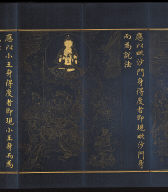 應以毗沙門身得度者即現毗沙門身
而為說法
應以小王身得度者即現小王身而為